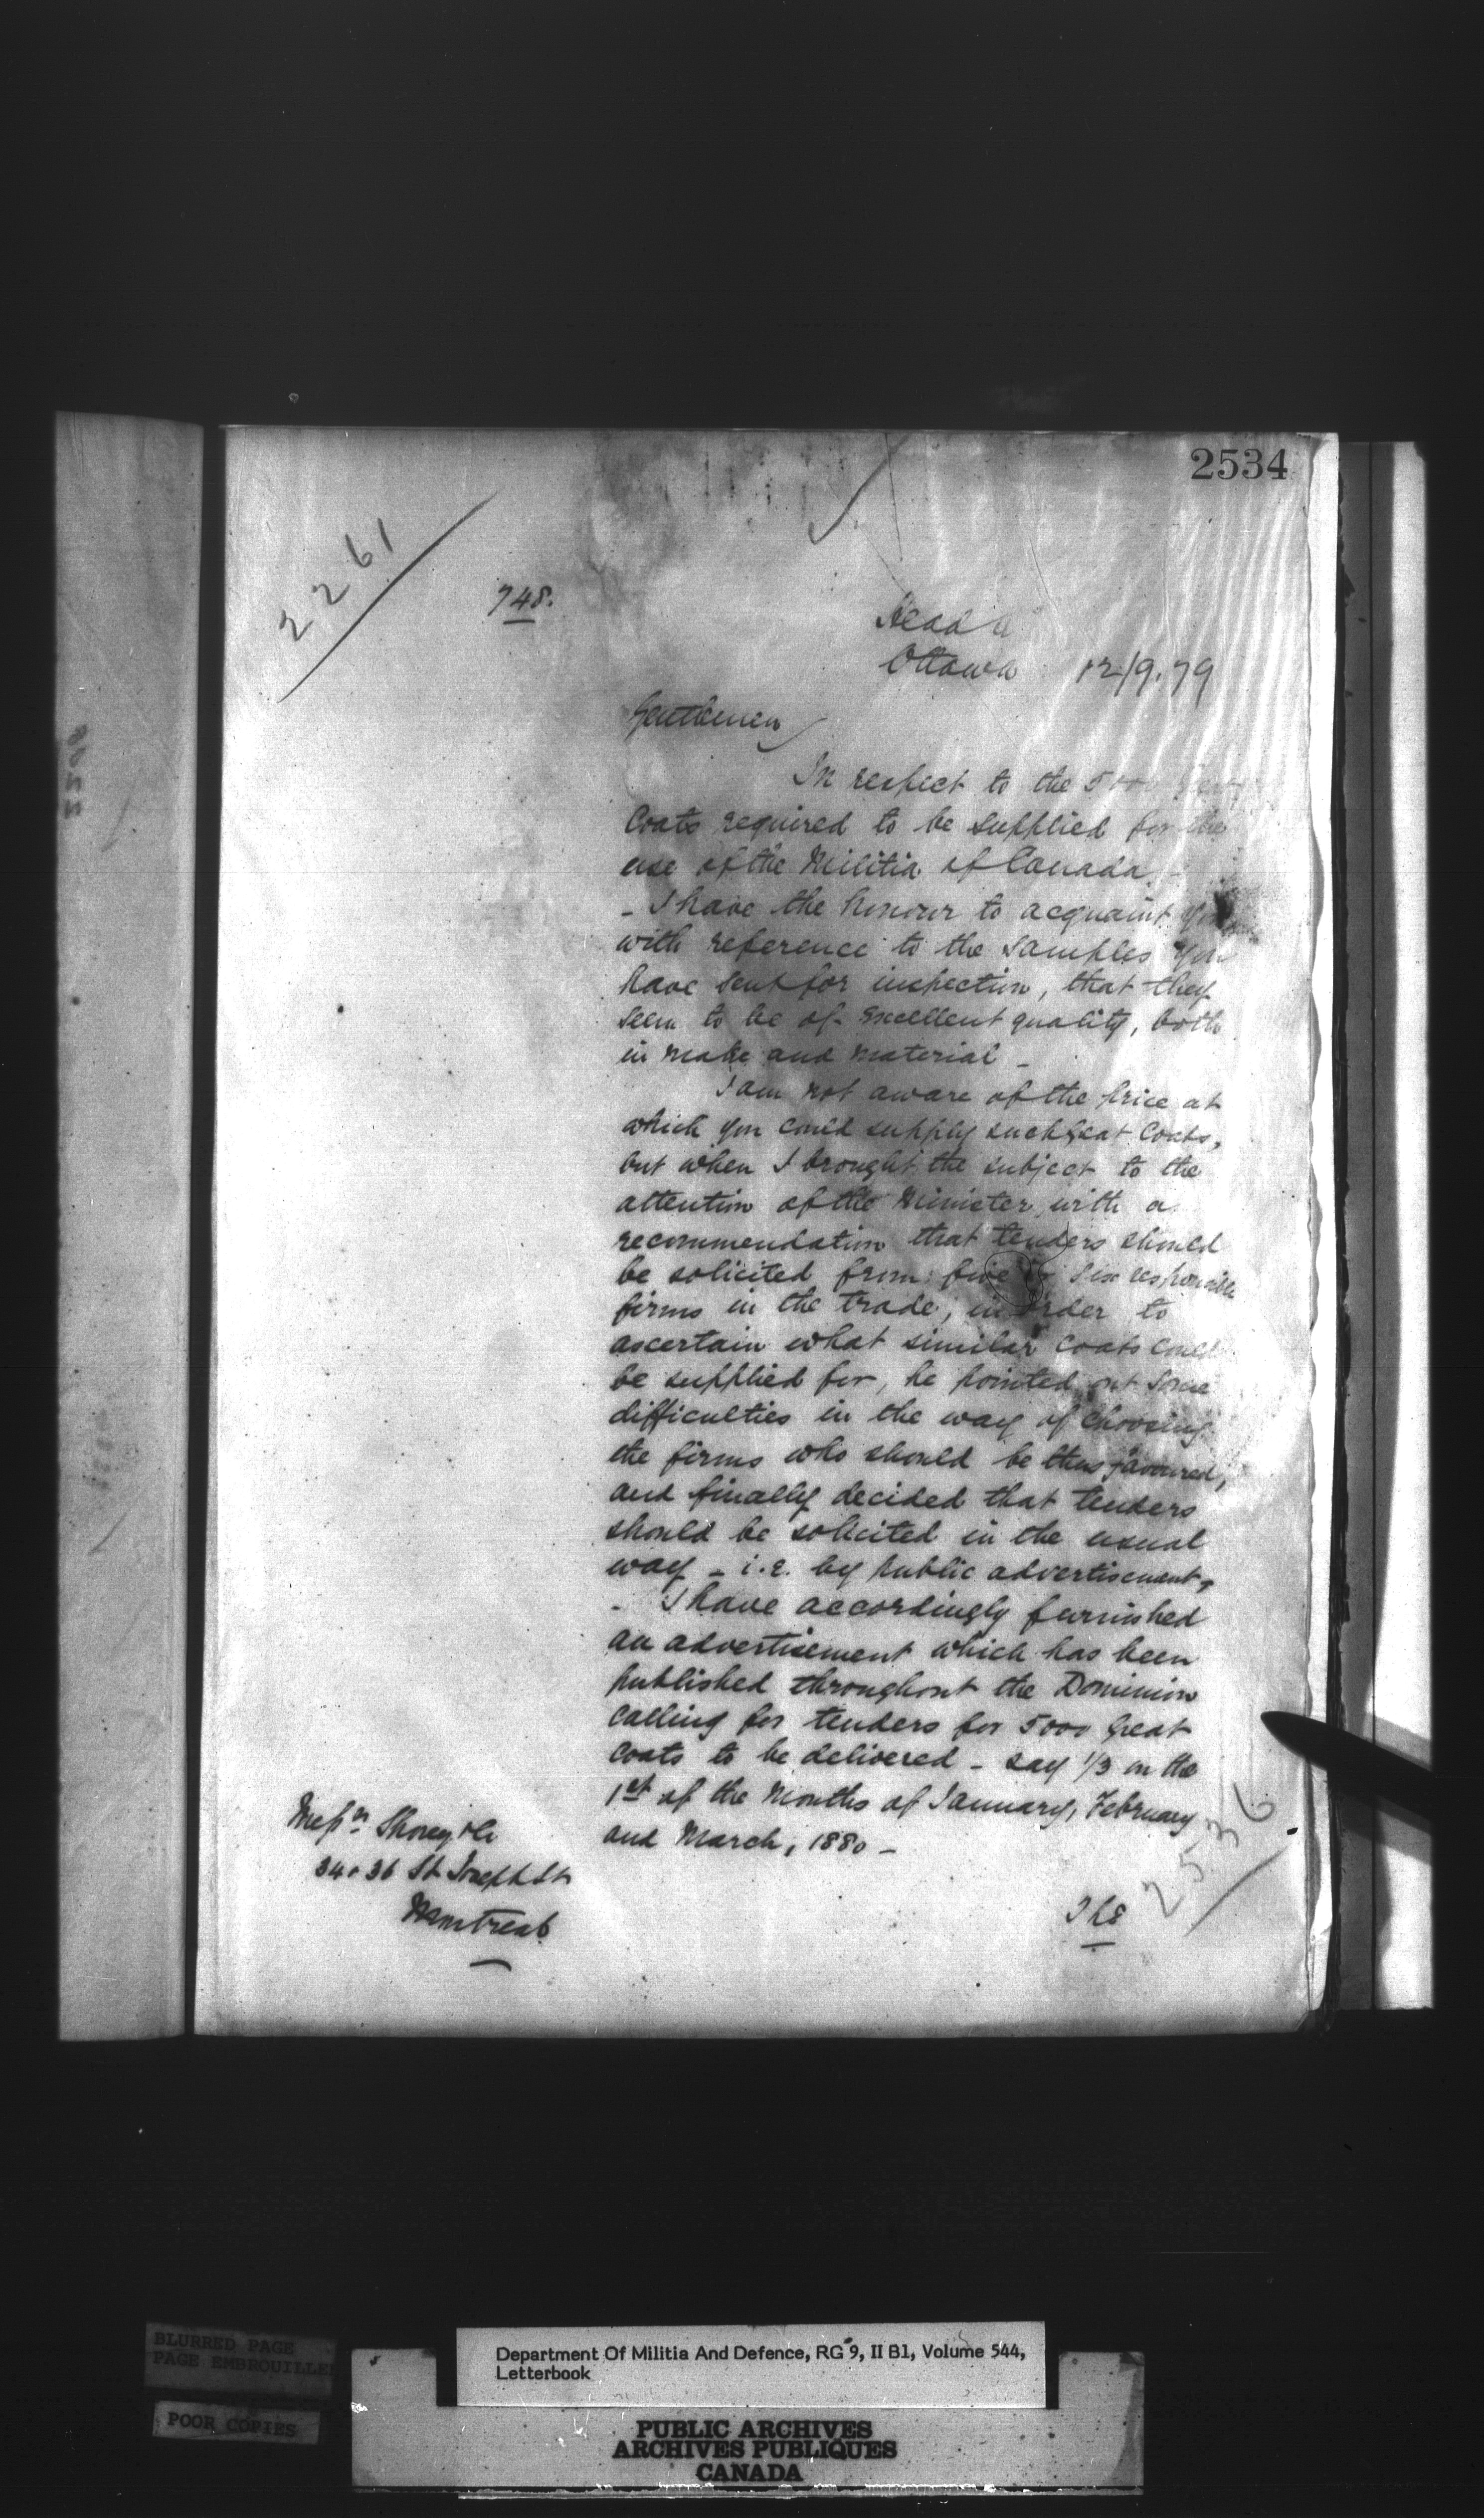 2534
2261
748.
Head Q
Ottawa 12/9.79
Gentlemen
In respect to the 5000 Great
Coats required to be supplied for the
use of the Militia of Canada. -
- I have the honour to acquaint you
with reference to the samples you
have sent for inspection, that they
seem to be of excellent quality, both
in make and material -
I am not aware of the price at
which you could supply such Great Coats,
but when I brought the subject to the
attention of the Minister, with a
recommendation that tenders should
be solicited from five or six responsible
firms in the trade, in order to
ascertain what similar coats could
be supplied for, he pointed out some
difficulties in the way of choosing
the firms who should be thus favoured,
and finally decided that tenders
should be solicited in the usual
way - i.e. by public advertisement,
- I have accordingly furnished
an advertisement which has been
published throughout the Dominion
calling for tenders for 5000 Great
Coats to be delivered - say 1/3 on the
1st of the months of January, February
and March, 1880 -
Messrs Shorey & Co
34 & 36 St Joseph St
Montreal
The
2536
BLURRED PAGE
PAGE EMBROUILLEE
POOR COPIES
Department Of Militia And Defence, RG 9, II B1, Volume 544,
Letterbook
PUBLIC ARCHIVES
ARCHIVES PUBLIQUES
CANADA